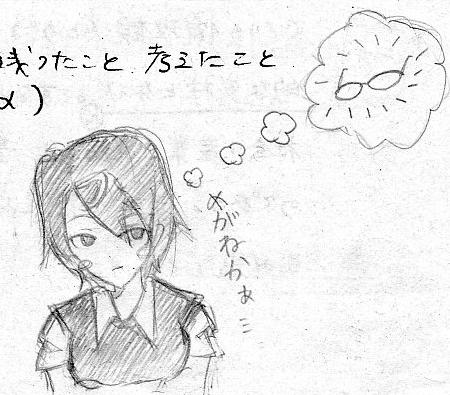 残ったこと、考えたこと
メ)
めがねかぁ…